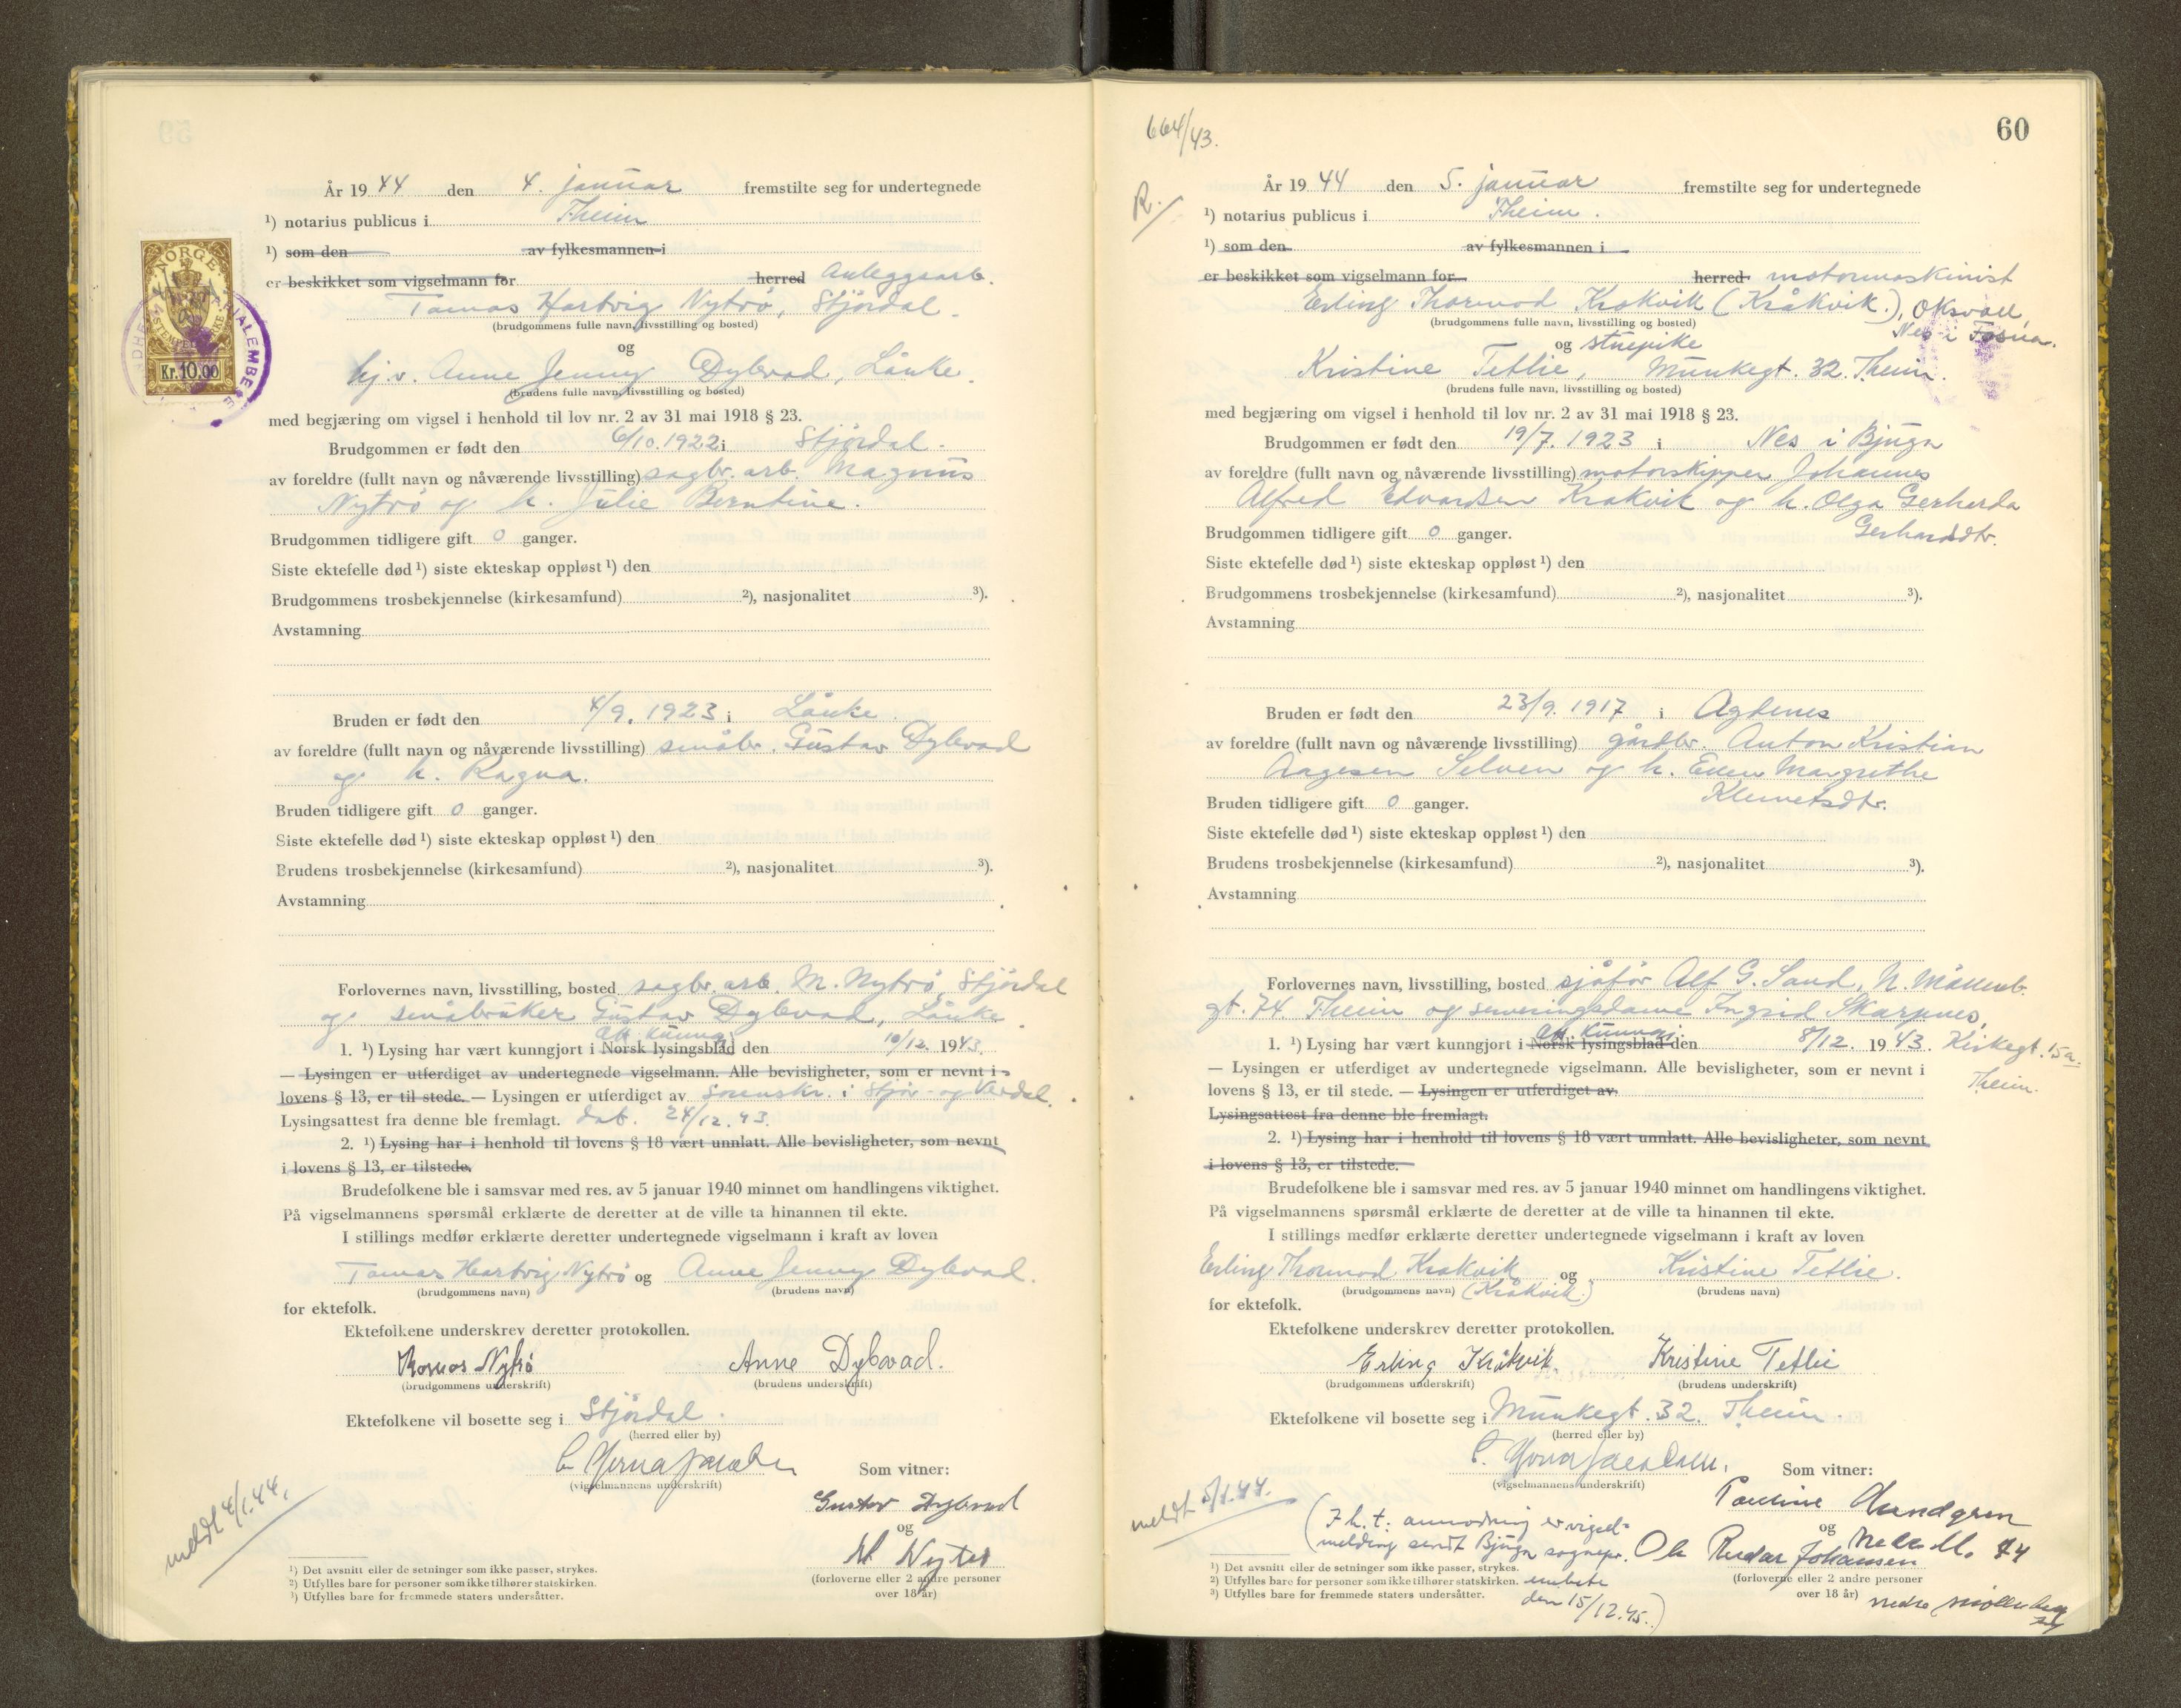 År 1944 den 4. januar fremstilte seg for undertegnede
¹) notarius publicus i Theim
¹) som den av fylkesmannen i
er beskikket som vigselmann for herred Anleggsarb.
Tomas Hartvig Nytrø, Stjørdal.
(brudgommens fulle navn, livsstilling og bosted)
og
hj.v. Anne Jenny Dybvad, Lånke.
(brudens fulle navn, livsstilling og bosted)
NORGE
Kr. 10.00
med begjæring om vigsel i henhold til lov nr. 2 av 31 mai 1918 § 23.
Brudgommen er født den 6/10.1922 i Stjørdal.
av foreldre (fullt navn og nåværende livsstilling) sagbr. arb. Magnus
Nytrø og h. Julie Berntine.
Brudgommen tidligere gift 0 ganger.
Siste ektefelle død ¹) siste ekteskap oppløst ¹) den
Brudgommens trosbekjennelse (kirkesamfund) ²), nasjonalitet ³).
Avstamning
Bruden er født den 4/9.1923 i Lånke
av foreldre (fullt navn og nåværende livsstilling) småbr. Gustav Dybvad
og h. Ragna.
Bruden tidligere gift 0 ganger.
Siste ektefelle død ¹) siste ekteskap oppløst ¹) den
Brudens trosbekjennelse (kirkesamfund) ²), nasjonalitet ³).
Avstamning
Forlovernes navn, livsstilling, bosted sagbr. arb. M. Nytrø, Stjørdal
og småbruker Gustav Dybvad, Lånke
off. kunngj.
1. ¹) Lysing har vært kunngjort i Norsk lysingsblad den 10/12. 1943.
— Lysingen er utferdiget av undertegnede vigselmann. Alle bevisligheter, som er nevnt i
lovens § 13, er til stede. — Lysingen er utferdiget av Sorenskr. i Stjør- og Verdal.
Lysingsattest fra denne ble fremlagt. dat. 24/12.43.
2. ¹) Lysing har i henhold til lovens § 18 vært unnlatt. Alle bevisligheter, som nevnt
i lovens § 13, er tilstede.
Brudefolkene ble i samsvar med res. av 5 januar 1940 minnet om handlingens viktighet.
På vigselmannens spørsmål erklærte de deretter at de ville ta hinannen til ekte.
I stillings medfør erklærte deretter undertegnede vigselmann i kraft av loven
Tomas Hartvig Nytrø og Anne Jenny Dybvad.
(brudgommens navn) (brudens navn)
for ektefolk.
Ektefolkene underskrev deretter protokollen.
Tomas Nytrø Anne Dybvad.
(brudgommens underskrift) (brudens underskrift)
Ektefolkene vil bosette seg i Stjørdal.
(herred eller by)
(vigselmannens underskrift)
Som vitner:
Gustav Dybvad
og
M Nytrø
(forloverne eller 2 andre personer
over 18 år)
meldt 4/1.44.
¹) Det avsnitt eller de setninger som ikke passer, strykes.
²) Utfylles bare for personer som ikke tilhører statskirken.
³) Utfylles bare for fremmede staters undersåtter.
664/43.
60
R.
År 1944 den 5. januar fremstilte seg for undertegnede
¹) notarius publicus i Theim.
¹) som den av fylkesmannen i
er beskikket som vigselmann for herred motormaskinist
Erling Thormod Krakvik (Kråkvik.), Oksvoll,
(brudgommens fulle navn, livsstilling og bosted) Nes i Fosna.
og stuepike
Kristine Tetlie, Munkegt. 32. Theim.
(brudens fulle navn, livsstilling og bosted)
med begjæring om vigsel i henhold til lov nr. 2 av 31 mai 1918 § 23.
Brudgommen er født den 19/7.1923 i Nes i Bjugn
av foreldre (fullt navn og nåværende livsstilling) motorskipper Johannes
Alfred Edvardsen Krakvik og h. Olga Gerharda
Gerhardsdtr.
Brudgommen tidligere gift 0 ganger.
Siste ektefelle død ¹) siste ekteskap oppløst ¹) den
Brudgommens trosbekjennelse (kirkesamfund) ²), nasjonalitet ³).
Avstamning
Bruden er født den 23/9.1917 i Agdenes
av foreldre (fullt navn og nåværende livsstilling) gårdbr. Anton Kristian
Aagesen Selven og h. Ellen Margrethe
Klemetsdtr.
Bruden tidligere gift 0 ganger.
Siste ektefelle død ¹) siste ekteskap oppløst ¹) den
Brudens trosbekjennelse (kirkesamfund) ²), nasjonalitet ³).
Avstamning
Forlovernes navn, livsstilling, bosted sjåfør Alf G. Sand, N. Möllenb.
gt. 74. Theim og serveringsdame Ingrid Skarpnes,
off. kunngj.
1. ¹) Lysing har vært kunngjort i Norsk lysingsblad den 8/12. 1943. Kirkegt. 15a.
Theim.
— Lysingen er utferdiget av undertegnede vigselmann. Alle bevisligheter, som er nevnt i
lovens § 13, er til stede. — Lysingen er utferdiget av
Lysingsattest fra denne ble fremlagt.
2. ¹) Lysing har i henhold til lovens § 18 vært unnlatt. Alle bevisligheter, som nevnt
i lovens § 13, er tilstede.
Brudefolkene ble i samsvar med res. av 5 januar 1940 minnet om handlingens viktighet.
På vigselmannens spørsmål erklærte de deretter at de ville ta hinannen til ekte.
I stillings medfør erklærte deretter undertegnede vigselmann i kraft av loven
Erling Thormod Krakvik og Kristine Tetlie.
(brudgommens navn) (Kråkvik.) (brudens navn)
for ektefolk.
Ektefolkene underskrev deretter protokollen.
Erling Kråkvik. Kristine Tetlie
(brudgommens underskrift) (brudens underskrift)
Ektefolkene vil bosette seg i Munkegt. 32. Theim.
(herred eller by)
(vigselmannens underskrift)
Som vitner:
Pauline Lundgren
og Nedre M. 74
Ole Reidar Johansen
(forloverne eller 2 andre personer
over 18 år) nedre Møllenberg
meldt 5/1.44.
(F.h.t. anmodning er vigsel-
melding sendt Bjugn sognepr.
embete
den 15/12.45.)
¹) Det avsnitt eller de setninger som ikke passer, strykes.
²) Utfylles bare for personer som ikke tilhører statskirken.
³) Utfylles bare for fremmede staters undersåtter.